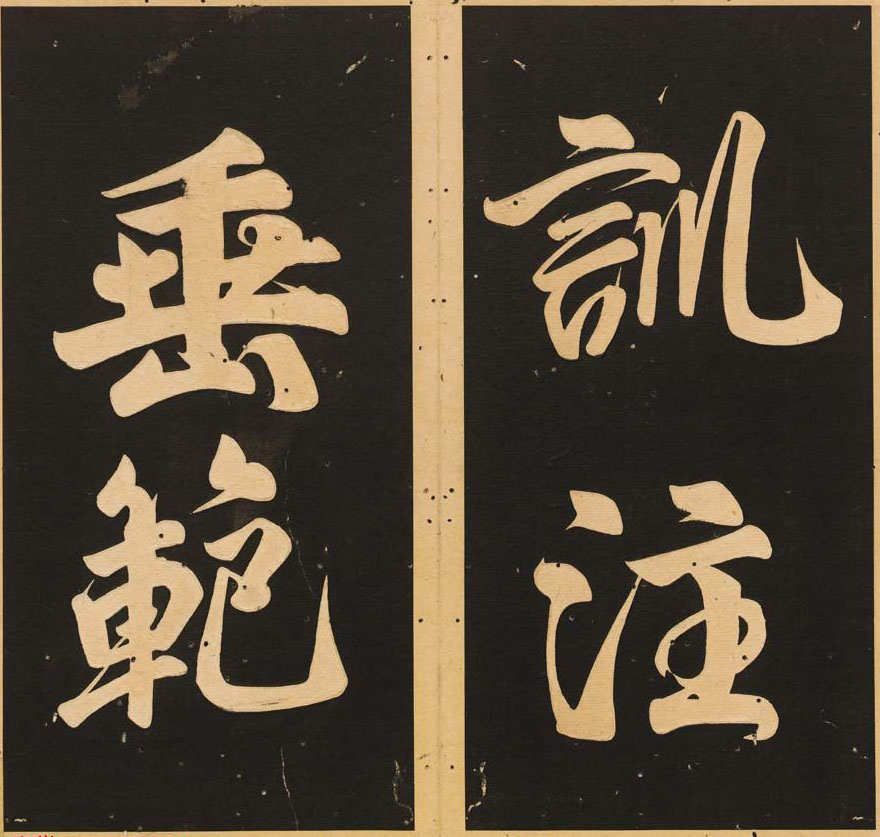 訓注
垂範